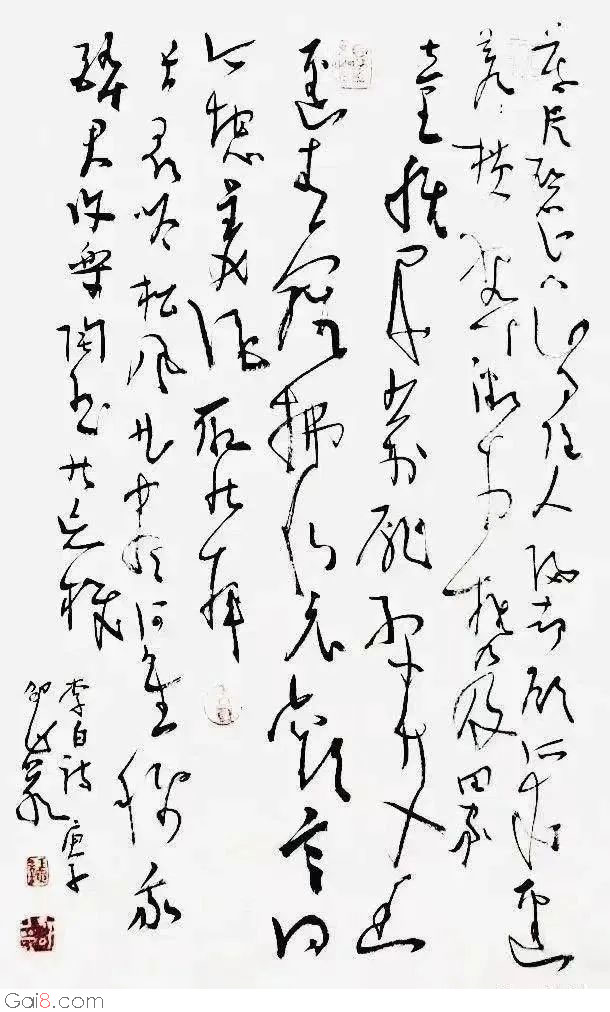 暮从碧山下山月随人归却顾所来径
苍苍横翠微相携及田家
童稚开荆扉绿竹入幽
径青萝拂行衣欢言得
所憩美酒聊共挥
长歌吟松风曲尽河星稀我
醉君复乐陶然共忘机
李白诗 庚子
Gai8.com